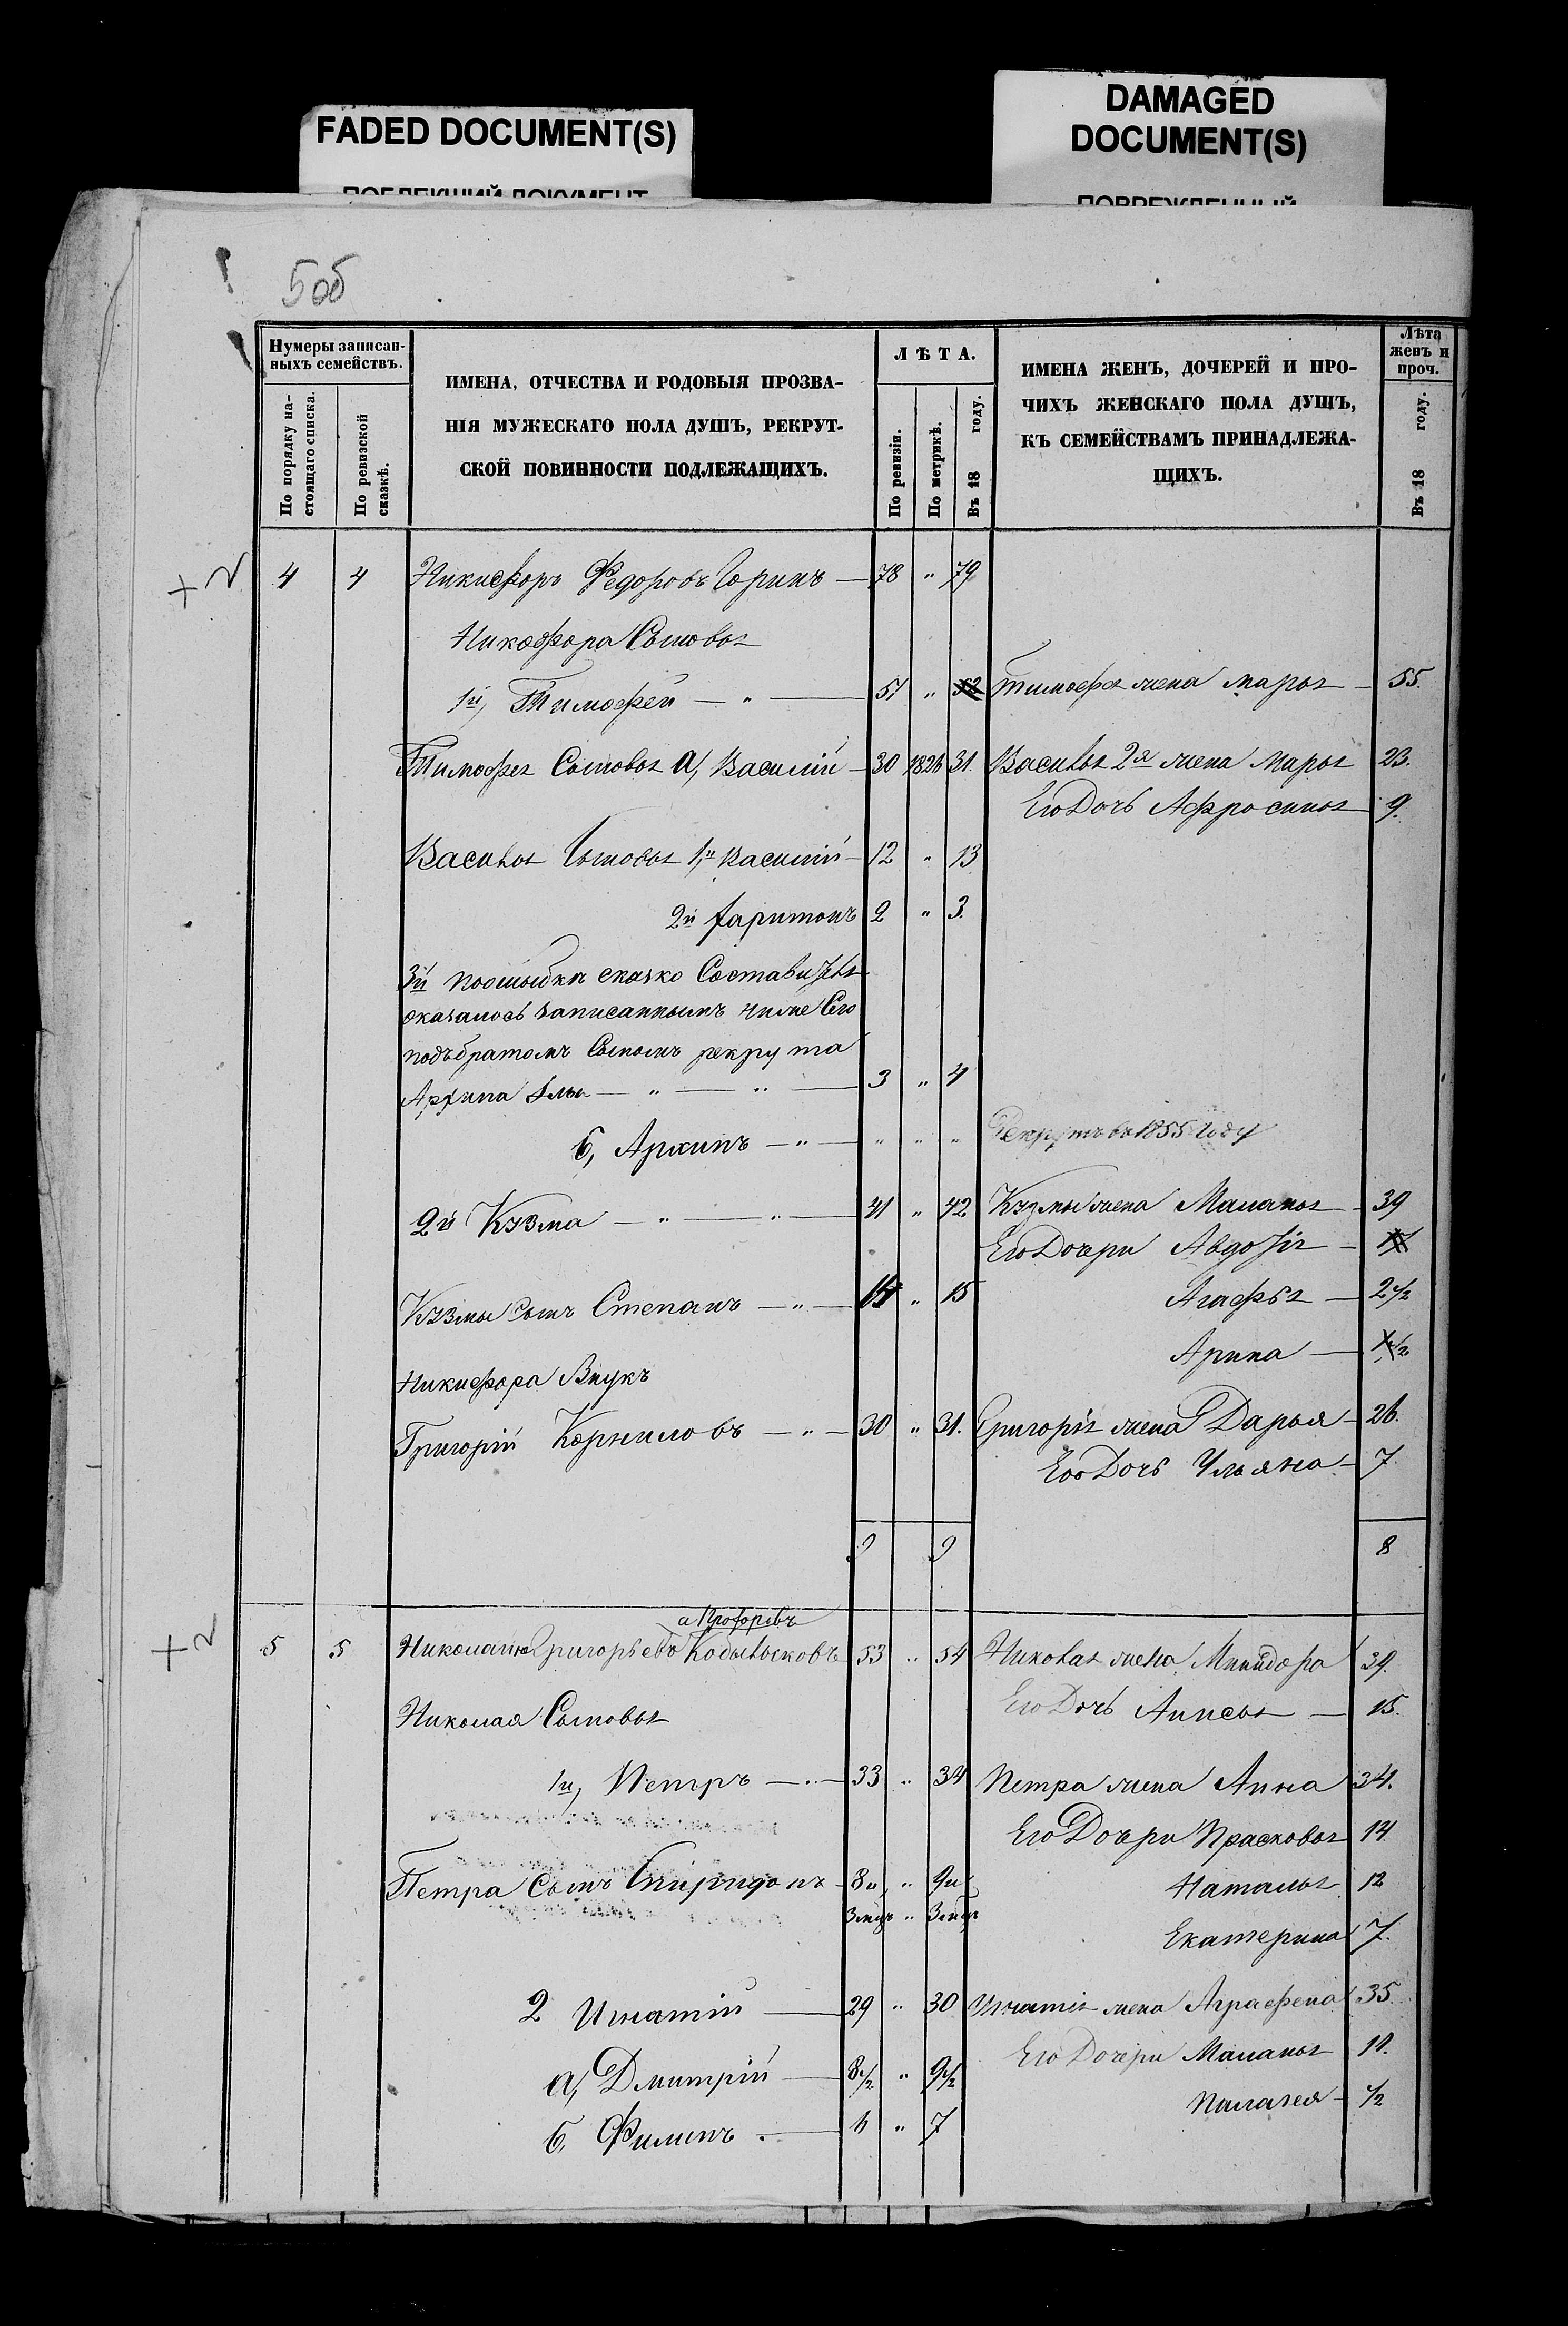 FADED DOCUMENT(S)
DAMAGED
DOCUMENT(S)
5об
Нумеры записан-
ныхъ семействъ.
По порядку на-
стоящаго списка.
По ревизской
сказкѣ.
ИМЕНА, ОТЧЕСТВА И РОДОВЫЯ ПРОЗВА-
НІЯ МУЖЕСКАГО ПОЛА ДУШЪ, РЕКРУТ-
СКОЙ ПОВИННОСТИ ПОДЛЕЖАЩИХЪ.
ЛѢТА.
По ревизіи.
По метрикѣ.
Въ 18 году.
ИМЕНА ЖЕНЪ, ДОЧЕРЕЙ И ПРО-
ЧИХЪ ЖЕНСКАГО ПОЛА ДУШЪ,
КЪ СЕМЕЙСТВАМЪ ПРИНАДЛЕЖА-
ЩИХЪ.
Лѣта
женъ и
проч.
Въ 18 году.
4 4 Никифоръ Федоровъ Горинъ — 78 " 79
Никофора Сыновья
1й, Тимофей — " — 51 " 52 Тимофея жена Марья — 55.
Тимофея Сыновья а, Василий — 30 1826 31. Василья 2я жена Марья 23.
Его Дочь Афросинья 9.
Василья Сыновья 1,й Василий — 12 " 13
2й Харитонъ 2 " 3.
3й
оказалось записаннымъ Его
подъ братомъ Сыномъ рекрута
Архипа — " — " — 3 " 4
б, Архипъ — " — " " " Рекрутъ въ 1855 Году
2й Кузма — " — " — 41 " 42 Кузмы жена Маланья — 39
Его Дочери Авдотья — 17
Кузмы сынъ Степанъ — " — 14 " 15 Агафья — 2 1/2
Арина — 1/2
Никифора Внукъ
Григорій Корниловъ — " — 30 " 31. Григорья жена Дарья — 26.
Его Дочь Ульяна — 7
9 9 8
а Прохоровъ
5 5 Николай Григорьевъ 53 " 54 Николая жена Минидора 39.
Николая Сыновья Его Дочь Анисья — 15.
1й, Петръ — " — 33 " 34 Петра жена Анна 34.
Его Дочери Прасковья 14.
Петра Сынъ Спиридонъ — 8 и, " 9 и Наталья 12
3 мца " 3 мца
Екатерина 7.
2 Игнатій — 29 " 30 Игнатія жена Аграфена 35.
а, Дмитрій — 8 1/2 " 9 1/2 Его Дочери Маланья 10.
Палагея — 1/2
б, Филипъ — 6 " 7